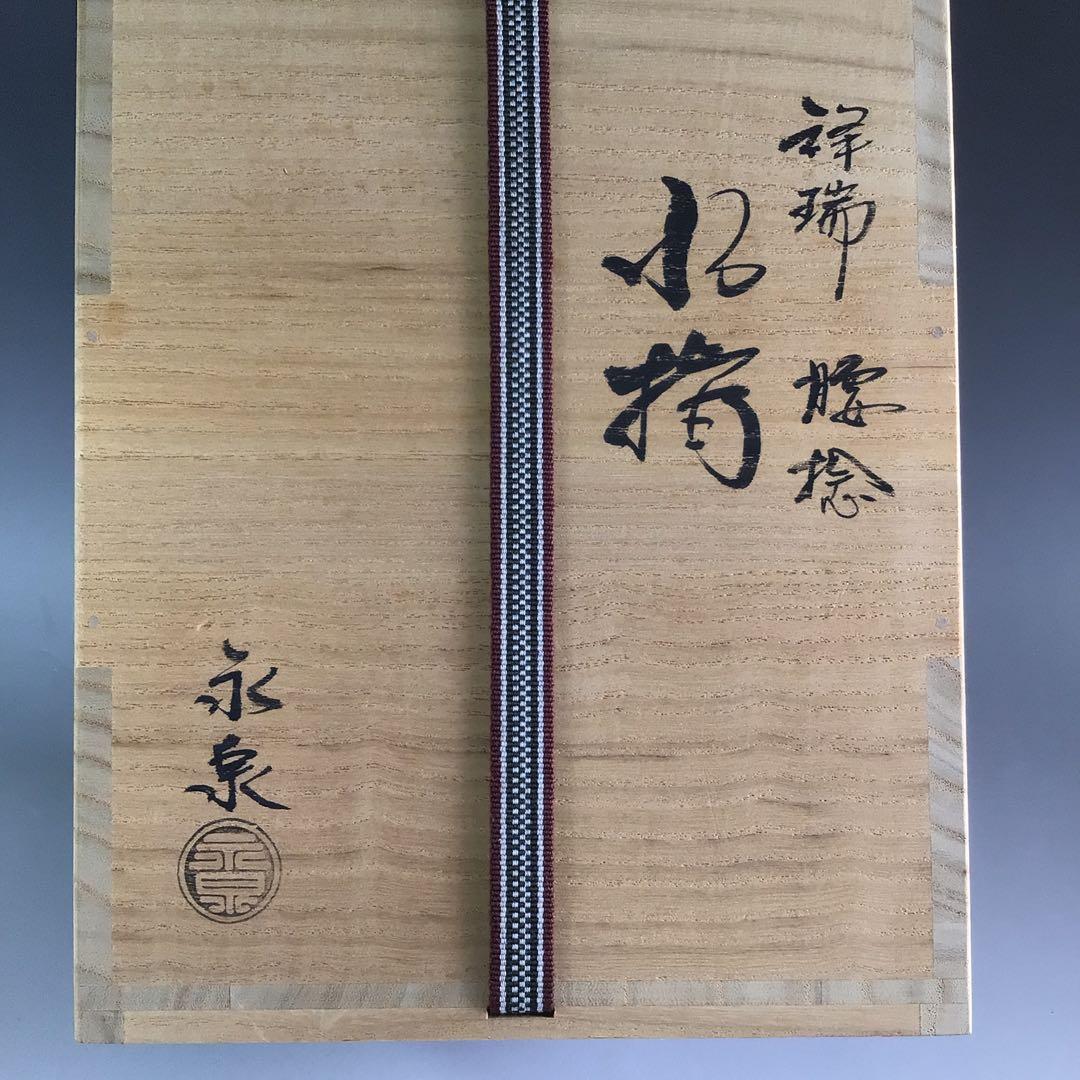 祥瑞 腰捻
水指
永泉